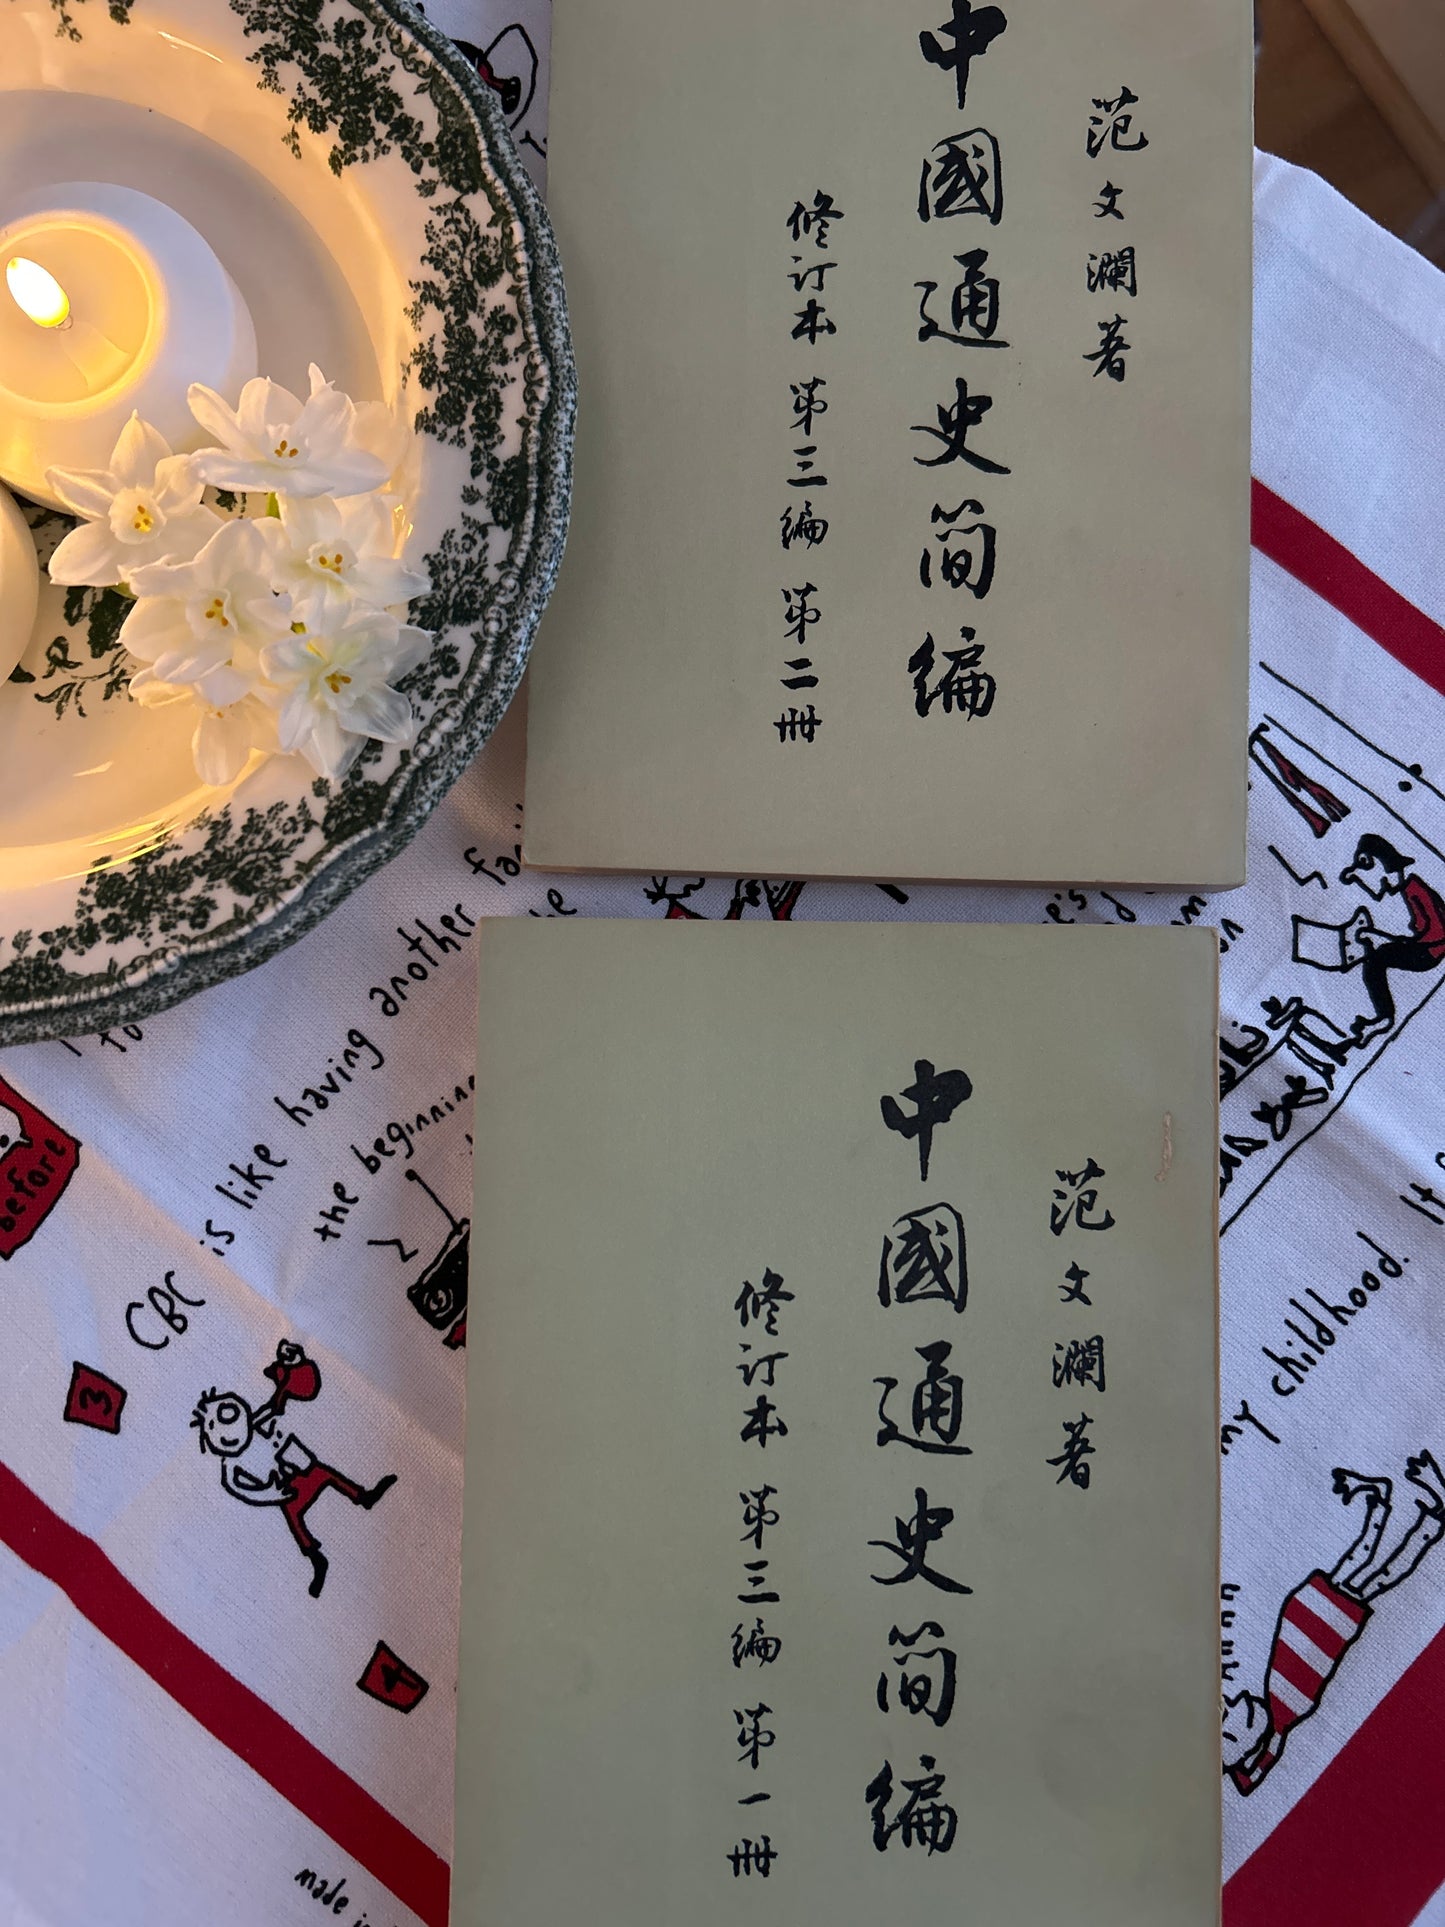 范文瀾著
中國通史简编
修订本 第三编 第二冊
范文瀾著
中國通史简编
修订本 第三编 第一冊
is like having another
the beginning
CBC
before
3
4
my childhood.
made in